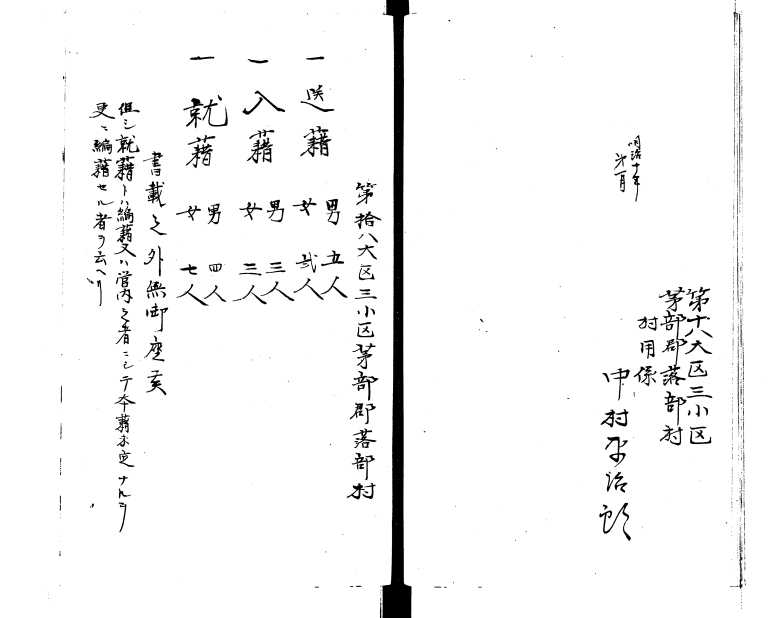 明治十年
第十八大区三小区
茅部郡落部村
村用係
中村平治郎
第拾八大区三小区茅部郡落部村
一送籍 男五人
女弐人
一入籍 男三人
女三人
一就籍 男四人
女七人
書載之外無御座候
但シ就籍トハ編籍又ハ管内之者ニシテ本籍未定ナルヲ
更ニ編籍セル者ヲ云ヘリ